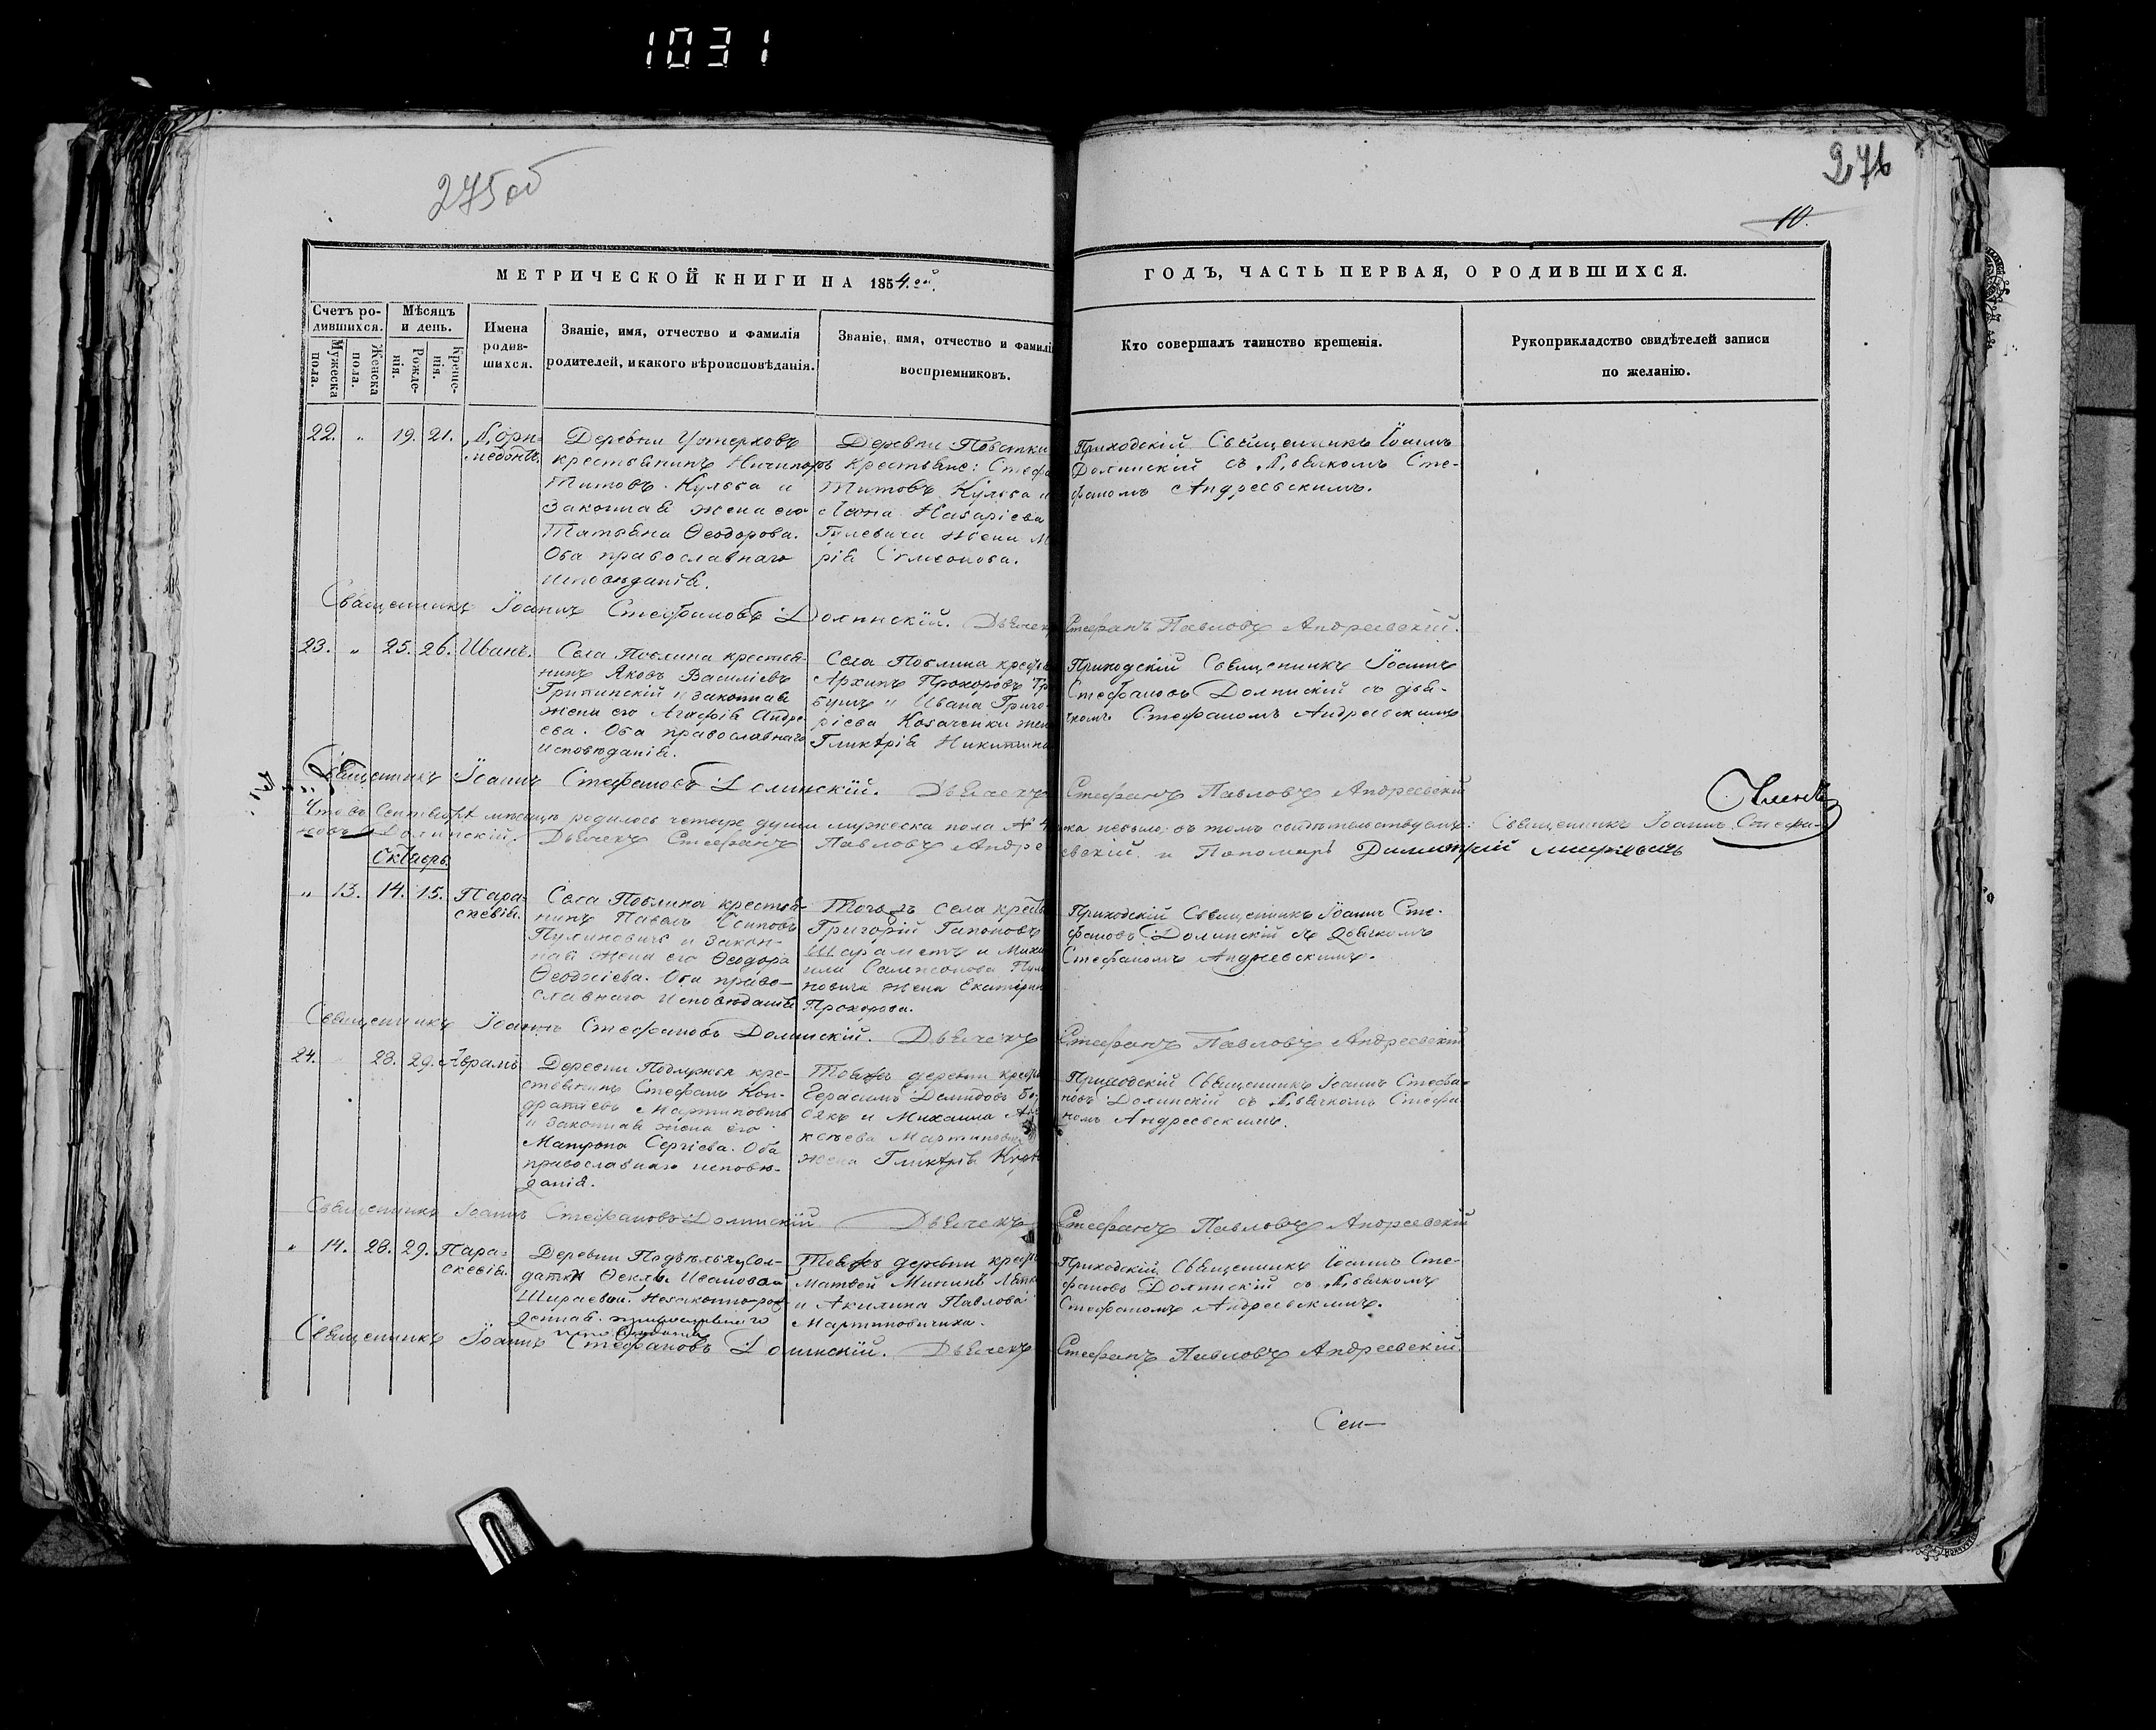 1031
275 об
276
10.
МЕТРИЧЕСКОЙ КНИГИ НА 1854.ой
ГОДЪ, ЧАСТЬ ПЕРВАЯ, О РОДИВШИХСЯ.
Счетъ ро-
дившихся.
Мужеска пола.
Женска пола.
Мѣсяцъ
и день.
Рожде-
нія.
Креще-
нія.
Имена
родив-
шихся.
Званіе, имя, отчество и фамилія
родителей, и какого вѣроисповѣданія.
Званіе, имя, отчество и фамилі
воспріемниковъ.
Кто совершалъ таинство крещенія.
Рукоприкладство свидѣтелей записи
по желанію.
22. " 19. 21.
Деревни
крестьянинъ Ничипоръ
Титовъ Кульба и
Законная жена его
Татьяна Ѳеодорова.
Оба православнаго
исповѣданія.
Деревни Повстки
Крестьяне: Стефа
Титовъ Кульба и
Назаріева
Гулевича жена М
рія Сѵмеонова.
Приходскій Священникъ Іоаннъ
Долинскій съ Дьячкомъ Сте-
фаномъ Андреевскимъ.
Священникъ Іоаннъ Стефановъ Долинскій. Дьячекъ Стефанъ Павловъ Андреевскій.
23. " 25. 26. Иванъ.
Села Повлина крестья-
нинъ Яковъ Василіевъ
и законная
жена его Агафія Андре-
ева. Оба православнаго
исповѣданія.
Села Повлина крест
Архипъ Прохоровъ
и Ивана Григо-
ріева Козаченки жен
Гликерія Никитина
Приходскій Священникъ Іоаннъ
Стефановъ Долинскій съ дья-
чкомъ Стефаномъ Андреевскимъ
Священникъ Іоаннъ Стефановъ Долинскій. Дьячекъ Стефанъ Павловъ Андреевскій
Что въ Сентябрѣ мѣсяцѣ родилось четыре души мужеска пола а женска небыло; въ томъ свидѣтельствуемъ: Священникъ Іоаннъ Стефа-
новъ Долинскій. Дьячекъ Стефанъ Павловъ Андреевскій. и Пономарь Димитрій
Октябрь
" 13. 14. 15. Пара-
скевія.
Села Повлина крестья-
нинъ Павелъ Осиповъ
Пулиновичъ и закон-
ная жена его Ѳеодора
Оба право-
славнаго исповѣданія
Тогожъ села крест
Григорій Гапоновъ
Шараметъ и Миха
ила Сампсонова Пул
новича жена Екатерин
Прохорова.
Приходскій Священникъ Іоаннъ Сте-
фановъ Долинскій съ Дьячкомъ
Стефаномъ Андреевскимъ.
Священникъ Іоаннъ Стефановъ Долинскій. Дьячекъ Стефанъ Павловъ Андреевскій
24. 28. 29. Аврамъ
Деревни кре-
стьянинъ Стефанъ Кон-
дратіевъ Мартиновичъ
и законная жена его
Матрона Сергіева. Оба
православнаго исповѣ-
данія.
Тойжъ деревни крест
Герасимъ Демидовъ
и Михаила Але
ксѣева Мартинович
жена Гликерія
Приходскій Священникъ Іоаннъ Стефа-
новъ Долинскій съ Дьячкомъ Стефа-
номъ Андреевскимъ.
Священникъ Іоаннъ Стефановъ Долинскій Дьячекъ Стефанъ Павловъ Андреевскій
" 14. 28. 29. Пара-
скевія.
Деревни Сол-
датки Ѳеклы Ивановой
Шираевой. Незаконно-рож-
денная. православнаго
исповѣданія
Тойжъ деревни крест
Матвей Мининъ
и Акилина Павлова
Мартиновичиха.
Приходскій Священникъ Іоаннъ Сте-
фановъ Долинскій съ Дьячкомъ
Стефаномъ Андреевскимъ.
Священникъ Іоаннъ Стефановъ Долинскій. Дьячекъ Стефанъ Павловъ Андреевскій.